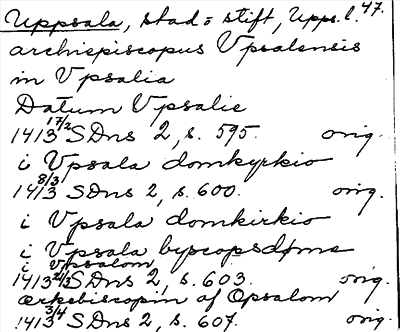 Uppsala, stad = stift, Upps. l. 47.
archiepiscopus Vpsalensis
in Vpsalia
Datum Vpsalie
1413 17/2 SDns 2, s. 595. orig.
i Vpsala domkyrkio
1413 8/3 SDns 2, s. 600. orig.
i Vpsala domkirkio
i Vpsala byscopsdøme
i Vpsalom
1413 21/3 SDns 2, s. 603. orig.
ærkebiscopin af Opsalom
1413 3/4 SDns 2, s. 607. orig.